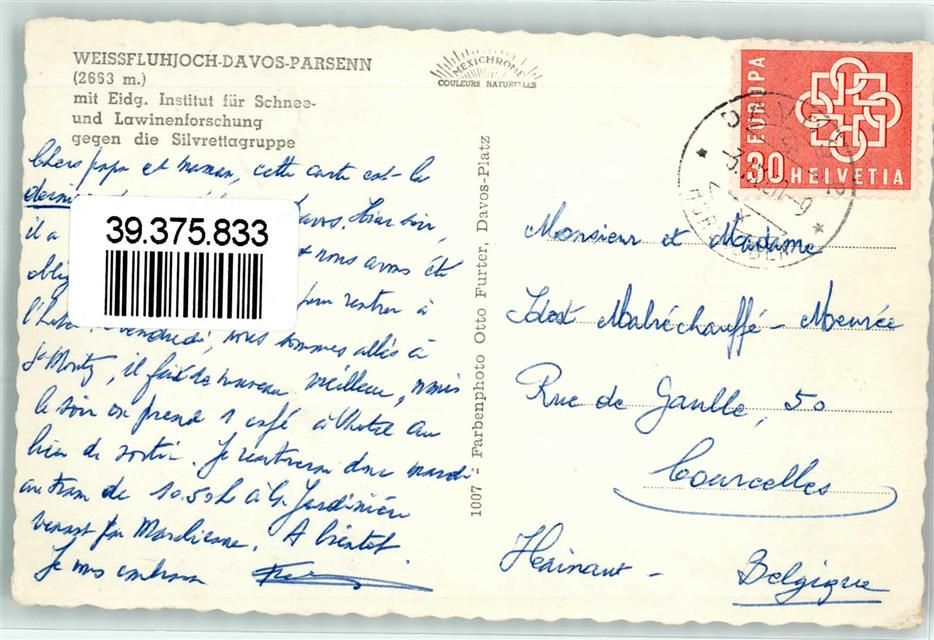 WEISSFLUHJOCH-DAVOS-PARSENN
(2663 m.)
mit Eidg. Institut für Schnee-
und Lawinenforschung
gegen die Silvrettagruppe
MEXICHROME
COULEURS NATURELLES
Chers papa et maman, cette carte est la
dernière Davos. Hier soir,
il a
39.375.833
et nous avons été
pour rentrer à
l'hôtel. Vendredi, nous sommes allés à
St Moritz, il fait de nouveau meilleur, mais
le soir on prend 1 café à l'hôtel au
lieu de sortir. Je rentrerai donc mardi
au train de 10.50h à G. Jardinière
venant par Marchienne. A bientôt.
Je vous embrasse
1007 - Farbenphoto Otto Furter, Davos-Platz
EUROPA
30 HELVETIA
DAVOS
Monsieur et Madame
Malréchauffé - Meurée
Rue de Gaulle, 50
Courcelles
Hainaut - Belgique